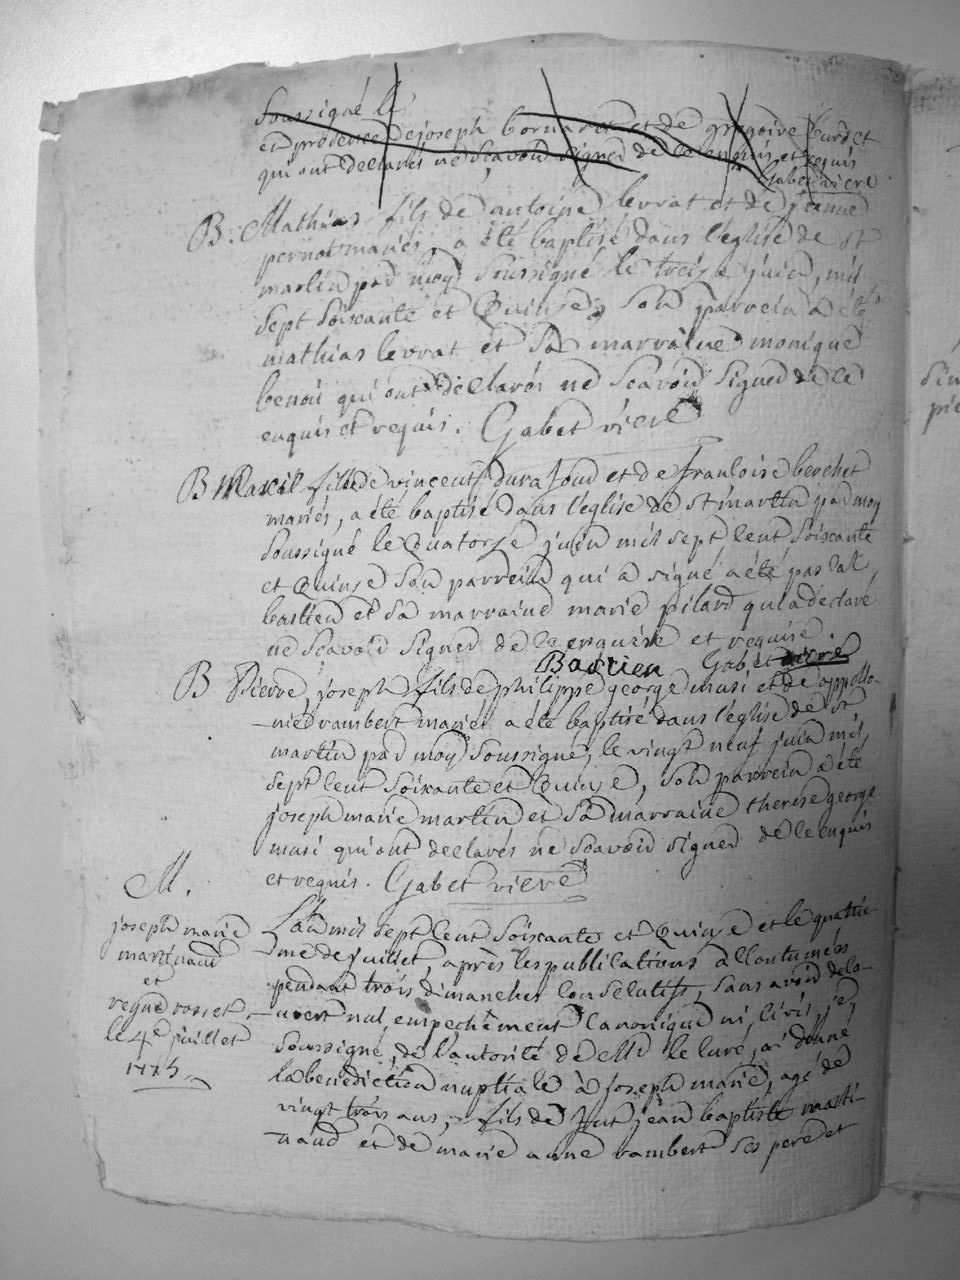 soussigné le
et présence de joseph bornard et de gregoire burdet
qui ont déclarés ne sçavoir signer de ce enquis et requis
Gabet vicre
B. Mathias fils de antoine levrat et de jeanne
pernot mariés, a été baptisé dans l'eglise de st
martin par moy soussigné le treize juin, mil
sept soixante et Quinze, son parrein a été
mathias levrat et sa marraine monique
benoi qui ont déclarés ne scavoir signer de ce
enquis et requis. Gabet vicre
B fille de vincent durafour et de francoise berchet
mariés, a été baptisé dans l'église de st martin par moy
soussigné le Quatorze juin mil sept cent soixante
et Quinze son parrein qui a signé a été pascal
bastien et sa marraine marie pilard qui a déclaré
ne scavoir signer de ce enquise et requise.
Bastien Gabet vicre
B Pierre joseph fils de philippe george musi et de appollo-
nie rambert mariés a été baptisé dans l'église de st
martin par moy soussigné, le vingt neuf juin mil
sept cent soixante et Quinze, son parrein a été
joseph marie martin et sa marraine therese george
musi qui ont declarés ne scavoir signer de ce enquis
et requis. Gabet vicre
M.
joseph marie
martinaud
et
reyne rosset
le 4e juillet
1775
L'an mil sept cent soixante et Quinze et le quatrie-
me de juillet, après les publications accoutumées
pendant trois dimanches consecutifs, sans avoir déco-
uvert nul empechement canonique ni civil, je
soussigné, de l'autorité de Mr le curé, ai donné
la benediction nuptiale à joseph marie, agé de
vingt trois ans, fils de fut jean baptiste marti-
naud et de marie anne rambert ses pere et